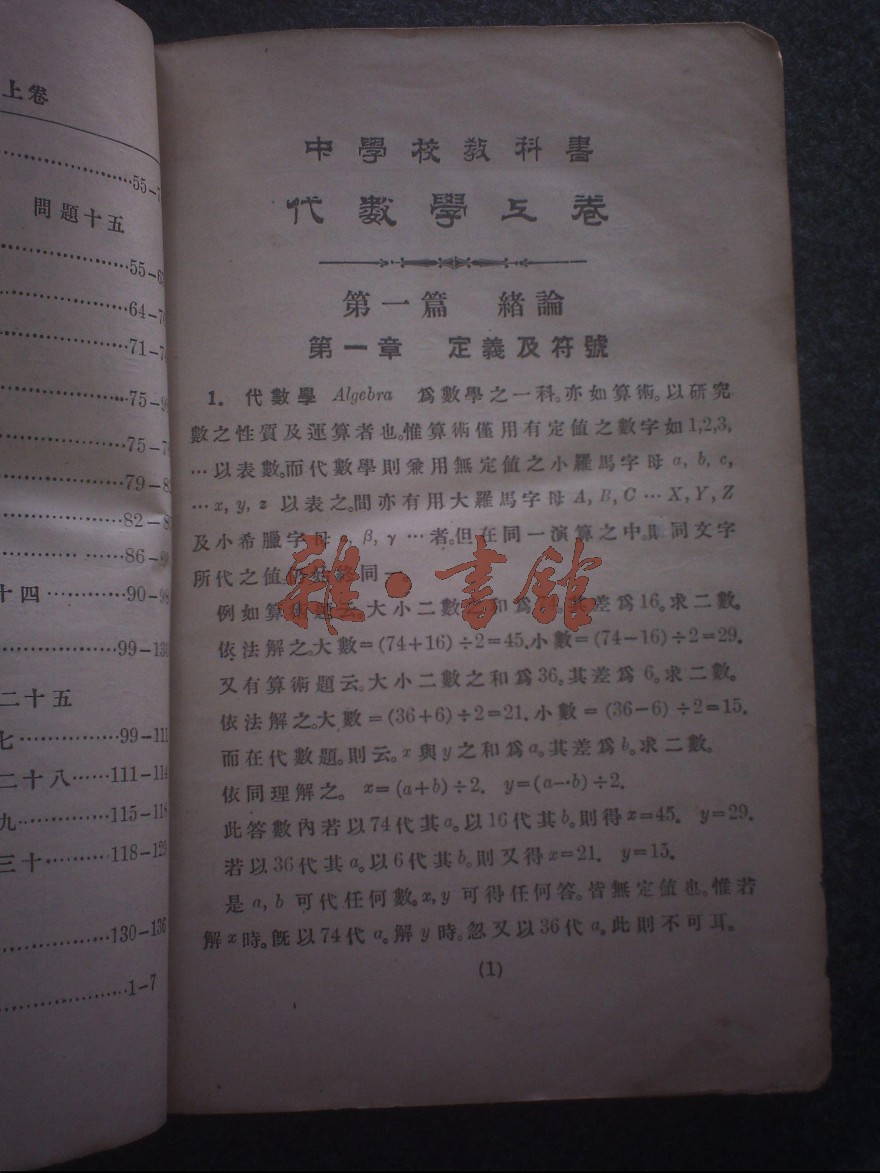 上卷
55-7
問題十五
55-6
64-7
71-7
75-9
75-7
79-8
82-8
86-9
十四 90-98
99-130
二十五
七 99-111
二十八 111-114
九 115-118
三十 118-129
130-136
1-7
中學校教科書
代數學上卷
第一篇 緒論
第一章 定義及符號
1. 代數學 Algebra 爲數學之一科。亦如算術。以研究
數之性質及運算者也。惟算術僅用有定值之數字如1,2,3,
…以表數。而代數學則兼用無定值之小羅馬字母 a, b, c,
…x, y, z 以表之。間亦有用大羅馬字母 A, B, C … X, Y, Z
及小希臘字母 , β, γ …者。但在同一演算之中。則同文字
所代之值。仍始終同一
例如算術題云。大小二數之和爲74。其差爲16。求二數。
依法解之。大數=(74+16)÷2=45. 小數=(74-16)÷2=29.
又有算術題云。大小二數之和爲36。其差爲6。求二數。
依法解之。大數=(36+6)÷2=21. 小數=(36-6)÷2=15.
而在代數題。則云。x與y之和爲a。其差爲b。求二數。
依同理解之。 x=(a+b)÷2. y=(a-b)÷2.
此答數內若以74代其a。以16代其b。則得x=45. y=29.
若以36代其a。以6代其b。則又得x=21. y=15.
是 a, b 可代任何數。x, y 可得任何答。皆無定值也。惟若
解x時。既以74代a。解y時。忽又以36代a。此則不可耳。
(1)
雅·書館